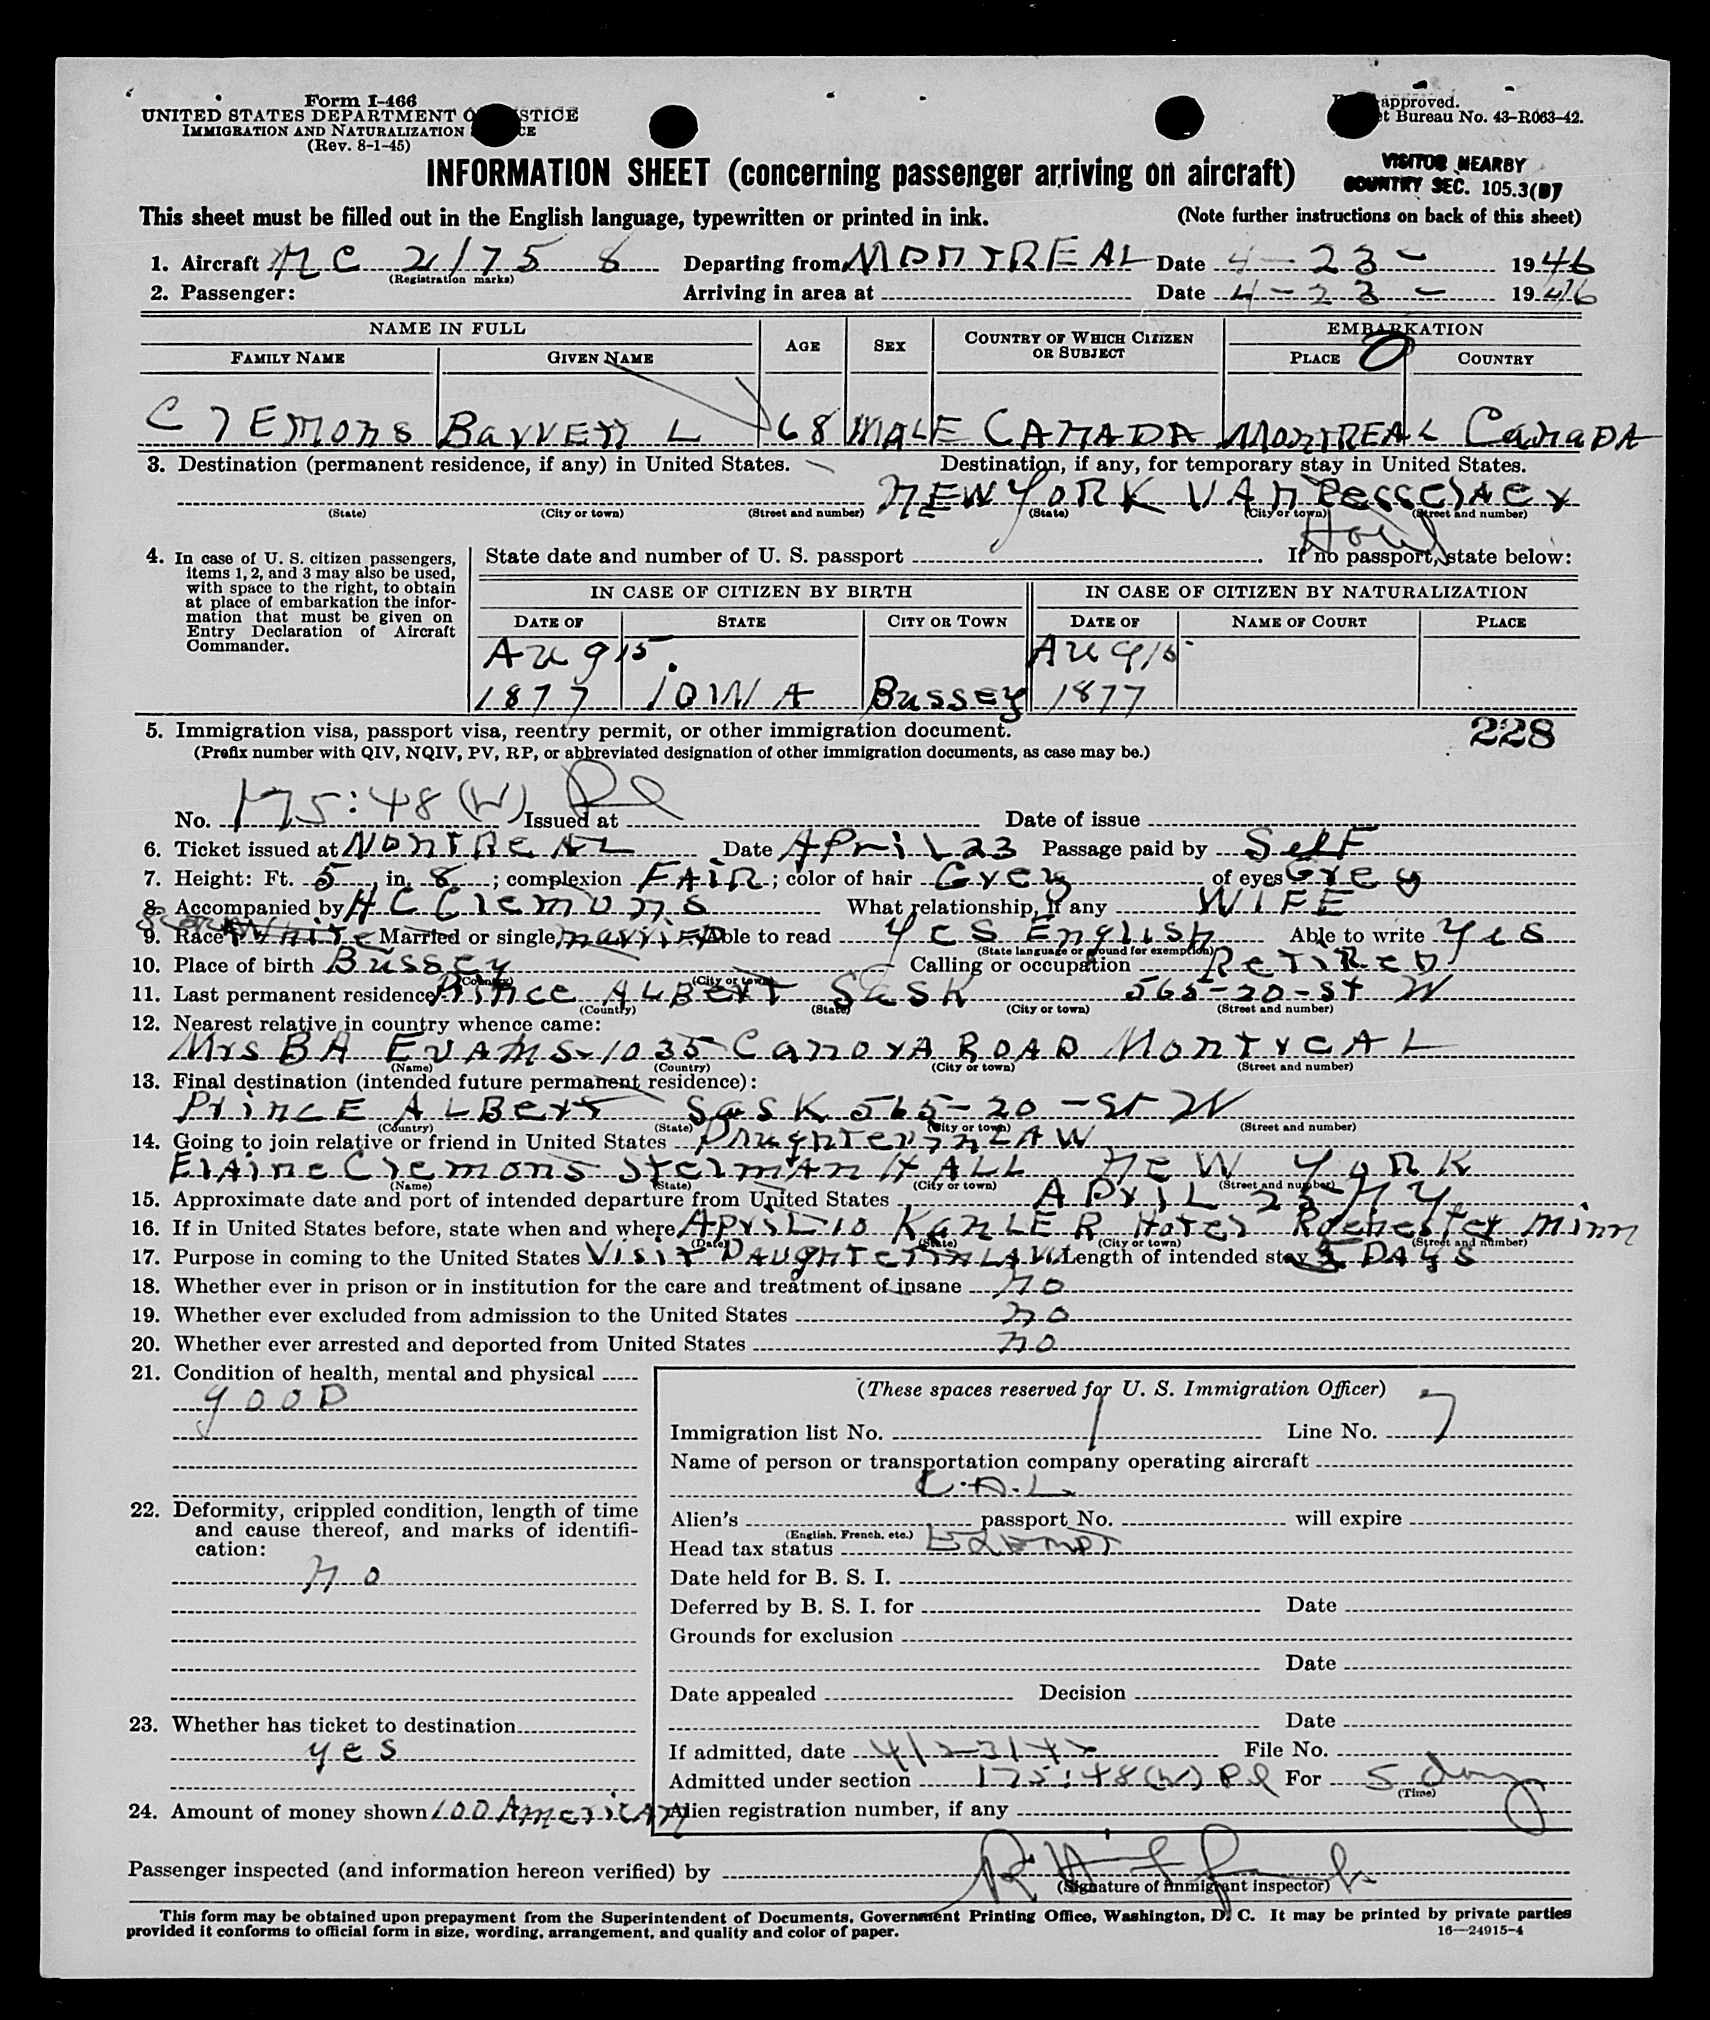 Form I-466
UNITED STATES DEPARTMENT O STICE
IMMIGRATION AND NATURALIZATION CE
(Rev. 8-1-45)
approved.
t Bureau No. 43-R063-42.
INFORMATION SHEET (concerning passenger arriving on aircraft)
VISITOR NEARBY
COUNTRY SEC. 105.3(B)
This sheet must be filled out in the English language, typewritten or printed in ink. (Note further instructions on back of this sheet)
1. Aircraft NC 21758 Departing from MONTREAL Date 4-23- 1946
(Registration marks)
2. Passenger: Arriving in area at Date 4-23- 1946
NAME IN FULL AGE SEX COUNTRY OF WHICH CITIZEN OR SUBJECT EMBARKATION
FAMILY NAME GIVEN NAME PLACE COUNTRY
ClEmons BarrEtt L 68 MALE CANADA MONTREAL CanaDA
3. Destination (permanent residence, if any) in United States. Destination, if any, for temporary stay in United States.
NEW YORK VAn
(State) (City or town) (Street and number) (State) (City or town) (Street and number)
Hotel
4. In case of U. S. citizen passengers, items 1, 2, and 3 may also be used, with space to the right, to obtain at place of embarkation the information that must be given on Entry Declaration of Aircraft Commander.
State date and number of U. S. passport If no passport, state below:
IN CASE OF CITIZEN BY BIRTH IN CASE OF CITIZEN BY NATURALIZATION
DATE OF STATE CITY OR TOWN DATE OF NAME OF COURT PLACE
Aug 15 Aug 15
1877 IOWA BussEy 1877
5. Immigration visa, passport visa, reentry permit, or other immigration document. 228
(Prefix number with QIV, NQIV, PV, RP, or abbreviated designation of other immigration documents, as case may be.)
No. 175:48(W) Pl Issued at Date of issue
6. Ticket issued at MONTREAL Date APril 23 Passage paid by SelF
7. Height: Ft. 5, in. 8; complexion FAIR; color of hair Grey of eyes Grey
8. Accompanied by H C Clemons What relationship, if any WIFE
9. Race White Married or single marriED Able to read Yes English Able to write Yes
(State language or ground for exemption)
10. Place of birth Bussey Calling or occupation RETIRED
(Country) (City or town)
11. Last permanent residence Prince ALBerT SASK 565-20-St W
(Country) (State) (City or town) (Street and number)
12. Nearest relative in country whence came:
Mrs BA EVANS-1035 CanorA ROAD MontreAL
(Name) (Country) (City or town) (Street and number)
13. Final destination (intended future permanent residence):
PrincE ALBert SasK 565-20-St W
(Country) (State) (City or town) (Street and number)
14. Going to join relative or friend in United States DaughTer in LAW
ElAine Clemons HALL NEW YORK
(Name) (State) (City or town) (Street and number)
15. Approximate date and port of intended departure from United States APriL 25 NY
16. If in United States before, state when and where APriL 10 KahLER Hotel Rochester Minn
(Date) (State) (City or town) (Street and number)
17. Purpose in coming to the United States VisiT DAughTer in LAW Length of intended stay DAYS
18. Whether ever in prison or in institution for the care and treatment of insane no
19. Whether ever excluded from admission to the United States no
20. Whether ever arrested and deported from United States no
21. Condition of health, mental and physical
gooD
22. Deformity, crippled condition, length of time and cause thereof, and marks of identification:
no
23. Whether has ticket to destination
yes
24. Amount of money shown 100 AmericAn
(These spaces reserved for U. S. Immigration Officer)
Immigration list No. 1 Line No. 7
Name of person or transportation company operating aircraft
C.A.L
Alien's passport No. will expire
(English, French, etc.)
Head tax status Exempt
Date held for B. S. I.
Deferred by B. S. I. for Date
Grounds for exclusion
Date
Date appealed Decision
Date
If admitted, date 4/23/46 File No.
Admitted under section 175:48(W) Pl For 5 days
(Time)
Alien registration number, if any
Passenger inspected (and information hereon verified) by
(Signature of immigrant inspector)
This form may be obtained upon prepayment from the Superintendent of Documents, Government Printing Office, Washington, D. C. It may be printed by private parties
provided it conforms to official form in size, wording, arrangement, and quality and color of paper. 16—24915-4